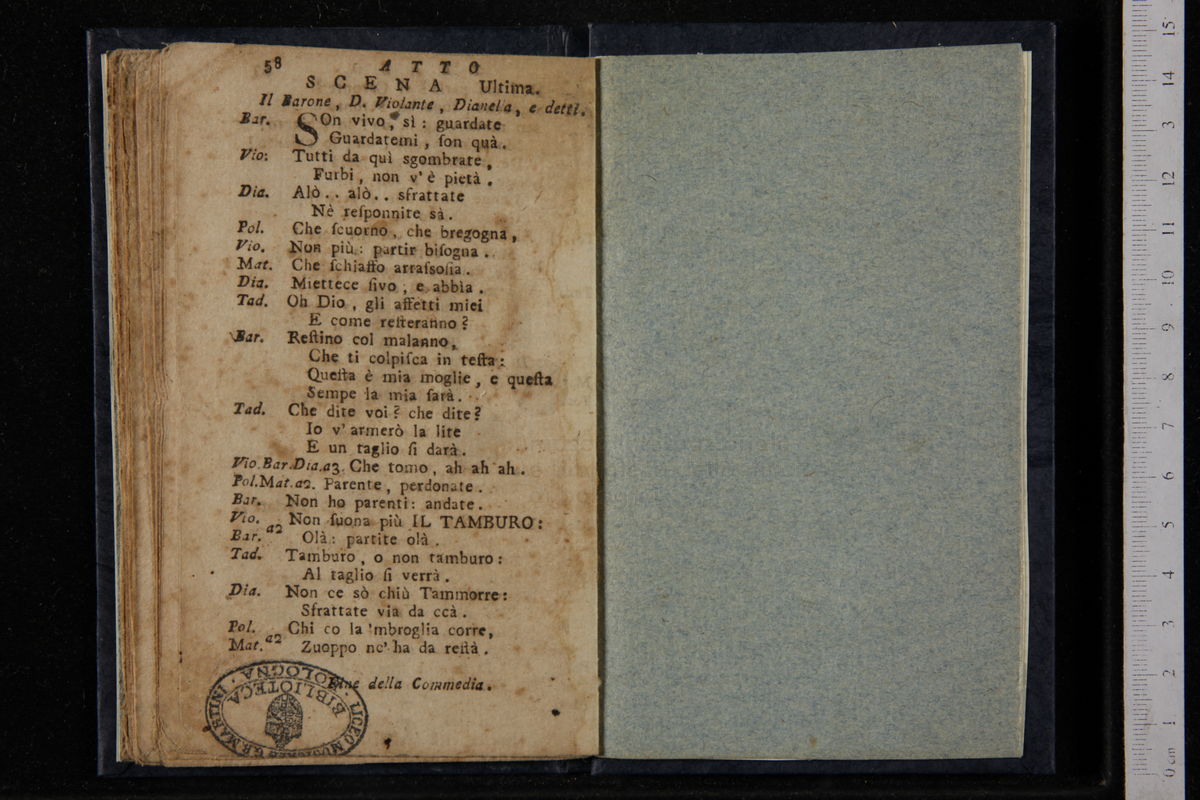 58 ATTO
SCENA Ultima.
Il Barone, D. Violante, Dianela, e detti.
Bar. SOn vivo, sì: guardate
Guardatemi, ſon quà.
Vio. Tutti da quì sgombrate,
Furbi, non v'è pietà.
Dia. Alò.. alò.. sfrattate
Nè reſponnite sà.
Pol. Che ſcuorno, che bregogna,
Vio. Non più: partir biſogna.
Mat. Che ſchiaffo arraſsoſia.
Dia. Miettece ſivo, e abbìa.
Tad. Oh Dio, gli affetti miei
E come reſteranno?
Bar. Reſtino col malanno,
Che ti colpiſca in teſta:
Queſta è mia moglie, e queſta
Sempe la mia ſarà.
Tad. Che dite voi? che dite?
Io v'armerò la lite
E un taglio ſi darà.
Vio.Bar.Dia.a3. Che tomo, ah ah ah.
Pol.Mat.a2. Parente, perdonate.
Bar. Non ho parenti: andate.
Vio. a2 Non ſuona più IL TAMBURO:
Bar. Olà: partite olà.
Tad. Tamburo, o non tamburo:
Al taglio ſi verrà.
Dia. Non ce sò chiù Tammorre:
Sfrattate via da ccà.
Pol. a2 Chi co la 'mbroglia corre,
Mat. Zuoppo nc' ha da reſtà.
Fine della Commedia.
LICEO MUSICALE G.B. MARTINI · BOLOGNA
BIBLIOTECA
15
14
3
12
11
10
9
8
7
6
5
4
3
2
1
0 cm